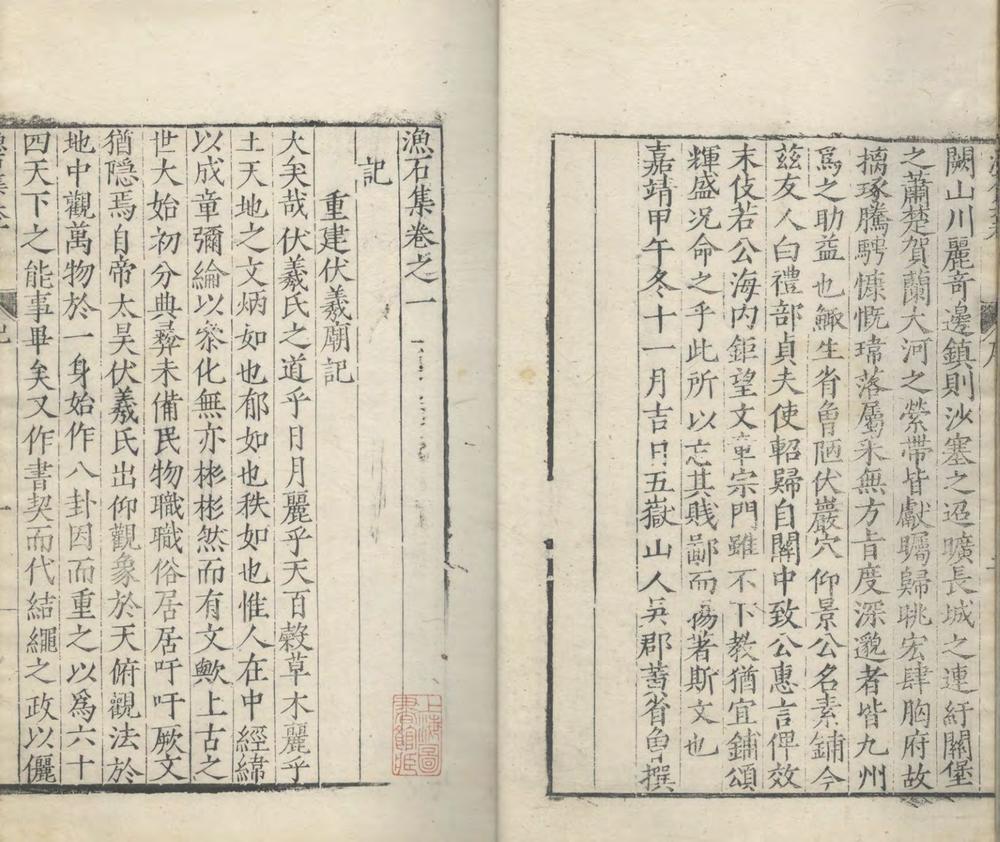 闕山川麗奇邊鎮則沙塞之迢曠長城之連紆關堡
之蕭楚賀蘭大河之縈帶皆獻矚歸眺宏肆胸府故
摛琢騰騁慷慨瑋落屬采無方旨度深邈者皆九州
爲之助益也鯫生省魯陋伏巖穴仰景公名素鋪今
茲友人白禮部貞夫使軺歸自關中致公惠言俾效
末伎若公海内鉅望文章宗門雖不下教猶宜鋪頌
輝盛况命之乎此所以忘其賤鄙而揚著斯文也
嘉靖甲午冬十一月吉日五嶽山人吳郡黃省曾撰
漁石集卷之一
記
重建伏羲廟記
大矣哉伏羲氏之道乎日月麗乎天百穀草木麗乎
土天地之文炳如也郁如也秩如也惟人在中經緯
以成章彌綸以叅化無亦彬彬然而有文歟上古之
世大始初分典彞未備民物職職俗居居吁吁厥文
猶隱焉自帝太昊伏羲氏出仰觀象於天俯觀法於
地中觀萬物於一身始作八卦因而重之以爲六十
四天下之能事畢矣又作書契而代結繩之政以儷
上海圖書館藏